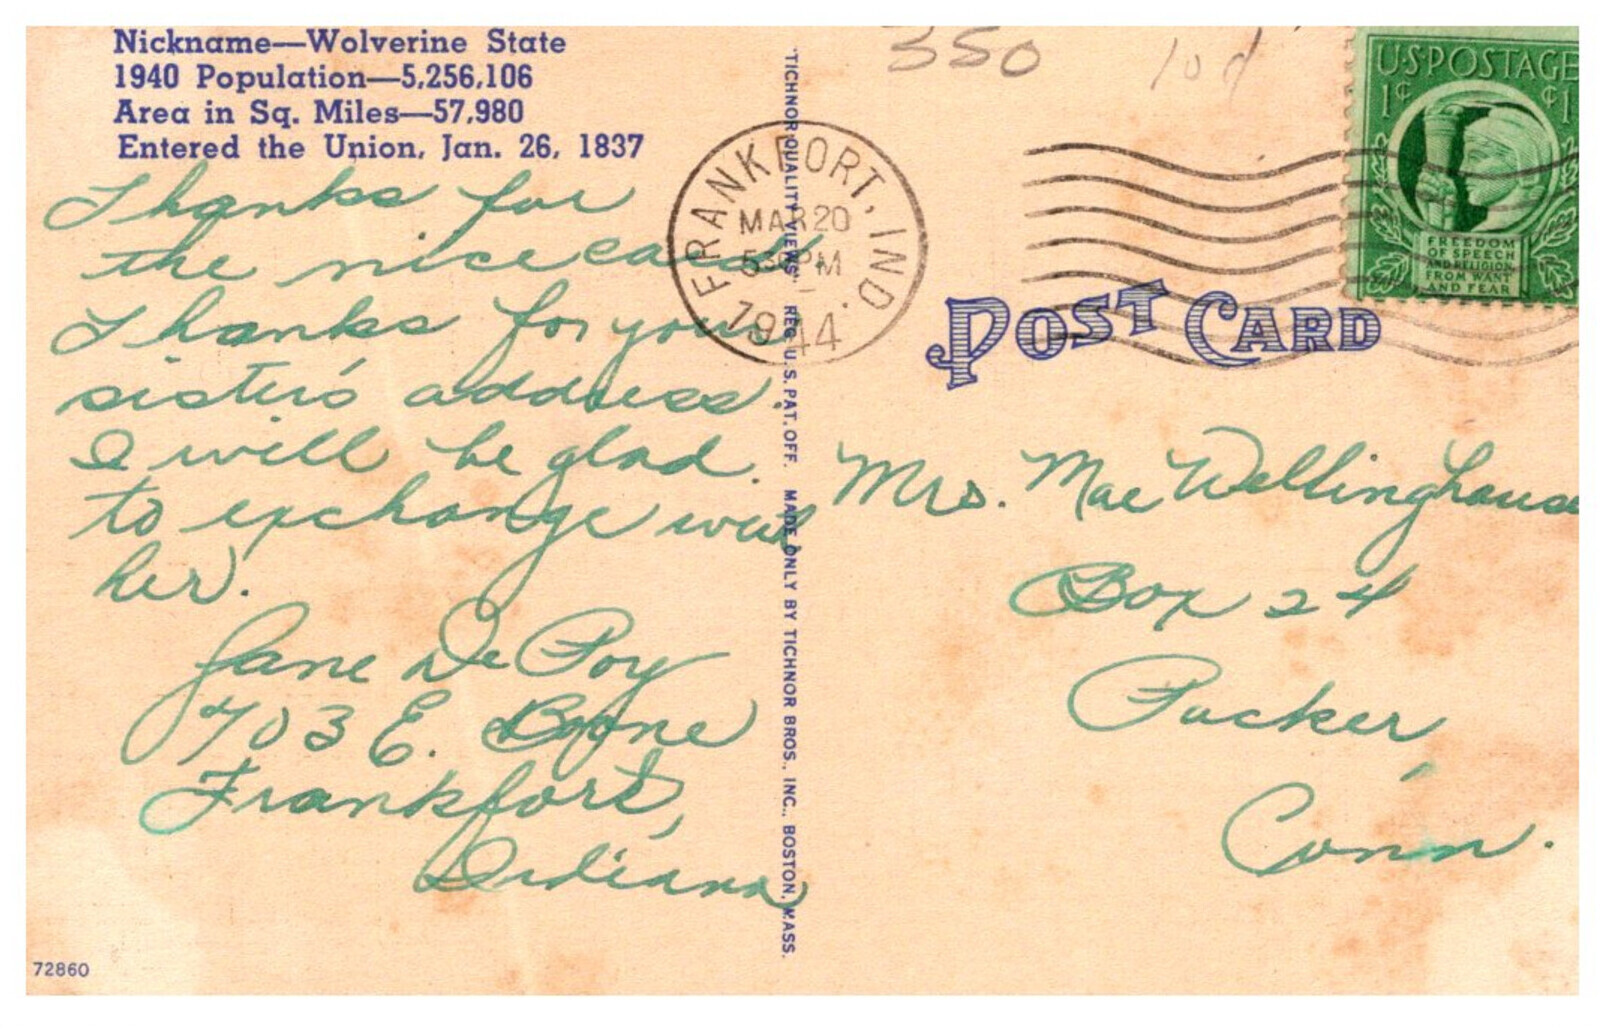 Nickname—Wolverine State
1940 Population—5,256,106
Area in Sq. Miles—57,980
Entered the Union, Jan. 26, 1837
Thanks for
the nice card
Thanks for your
sister's address.
I will be glad
to exchange with
her.
Jane De Poy
703 E. Boone
Frankfort,
Indiana
72860
TICHNOR QUALITY VIEWS. REG. U.S. PAT. OFF. MADE ONLY BY TICHNOR BROS., INC., BOSTON, MASS.
FRANKFORT, IND.
MAR 20
530 PM
1944
350
10d
U.S. POSTAGE
1¢ ¢1
FREEDOM
OF SPEECH
AND RELIGION
FROM WANT
AND FEAR
POST CARD
Mrs. Mae Wellinghause
Box 24
Packer,
Conn.